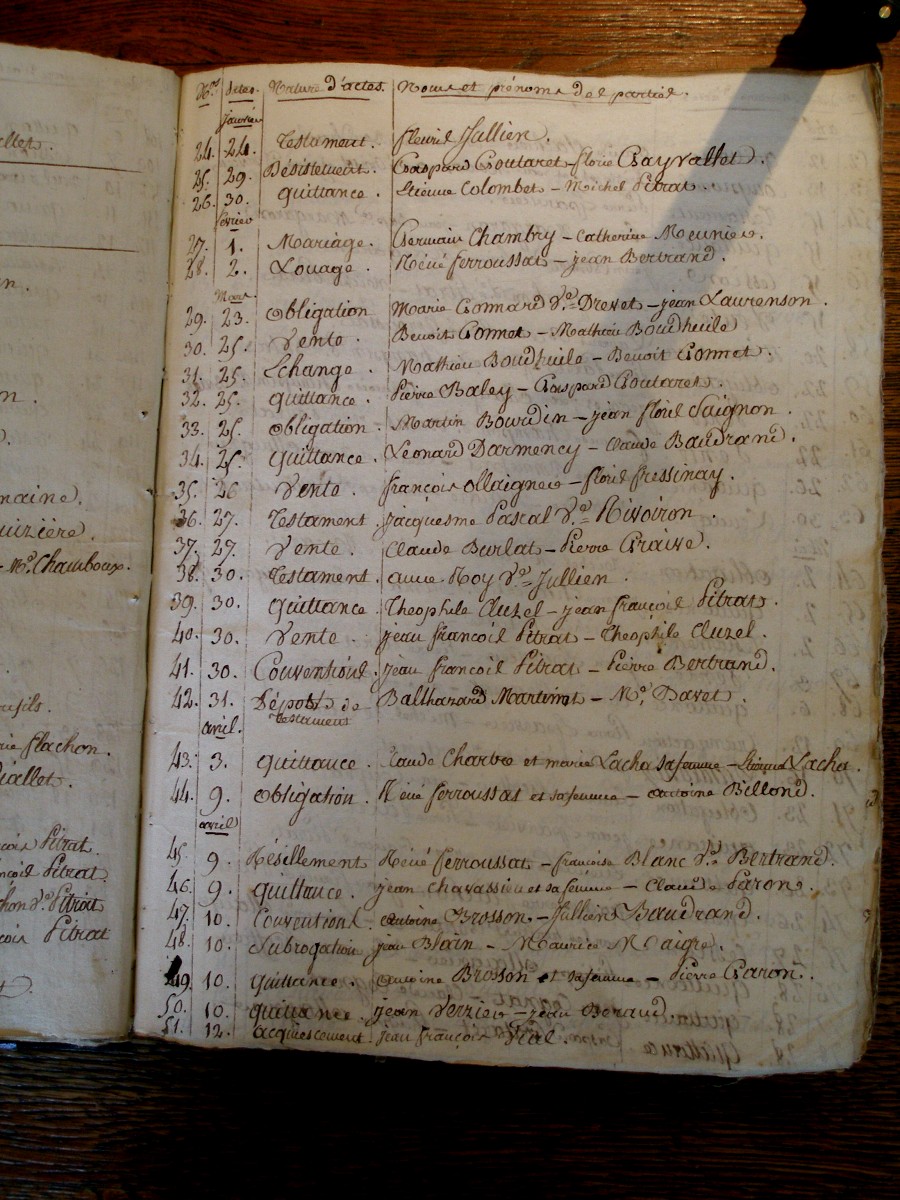 allet.
n.
n.
maine.
uizière.
- Me. Chambour.
rie flachon.
iallet.
çois Pitrat.
ançois Pitrat
chon Ve. Pitrat
çois Pitrat
Nos. Dates. Nature d'actes. Noms et prénoms des parties.
janvier
24. 24. Testament. fleurie Jullien.
25. 29. Désistement. Gaspard Goutaret - florie Gayvallet.
26. 30. quittance. Etienne Colombet - Michel Pitrat.
fevrier
27. 1. Mariage. Germain Chambry - Catherine Meunier.
28. 2. Louage. Réné ferroussat - jean Bertrand.
Mars
29. 23. obligation Marie Gonnard Ve. Drevet - jean Laurenson.
30. 25. Vente. Benoit Gonnet - Mathieu Boudheuile
31. 25. Echange. Mathieu Boudheuile - Benoit Gonnet.
32. 25. quittance. Pierre Baley - Gaspard Goutaret.
33. 25. obligation. Martin Bourdin - jean floris Saignon.
34. 25. quittance. Léonard Darmency - Claude Baudrand.
35. 26 Vente. françois ollaignier - floris fressinay.
36. 27. Testament. jacquesme Pascal Ve. Rivoiron.
37. 27. Vente. Claude Burlat - Pierre
38. 30. Testament. anne Roy Ve. Jullien.
39. 30. quittance. Theophile Cluzel - jean françois Pitrat.
40. 30. Vente. jean françois Pitrat - Theophile Cluzel.
41. 30. Conventions. jean françois Pitrat - Pierre Bertrand.
42. 31. Dépots de Balthazard Martinot - Me. Davet.
testament
avril.
43. 3. quittance. Claude Chartre et marie Lacha sa femme - Lachet.
44. 9. obligation. Réné ferroussat et sa femme - antoine Billond.
avril
45. 9. Résillement Réné ferroussat - françoise Blanc Ve. Bertrand.
46. 9. quittance. jean Chavassieu et sa femme - Claude Paron.
47. 10. Conventions. antoine Brosson - Jullien Baudrand.
48. 10. Subrogation jean Blain - Maurice Maigre.
49. 10. quittance. antoine Brosson et sa femme - Pierre Caron.
50. 10. quittance. jean Verrier - jean Beraud.
51. 12. acquiescement jean françois Vial.